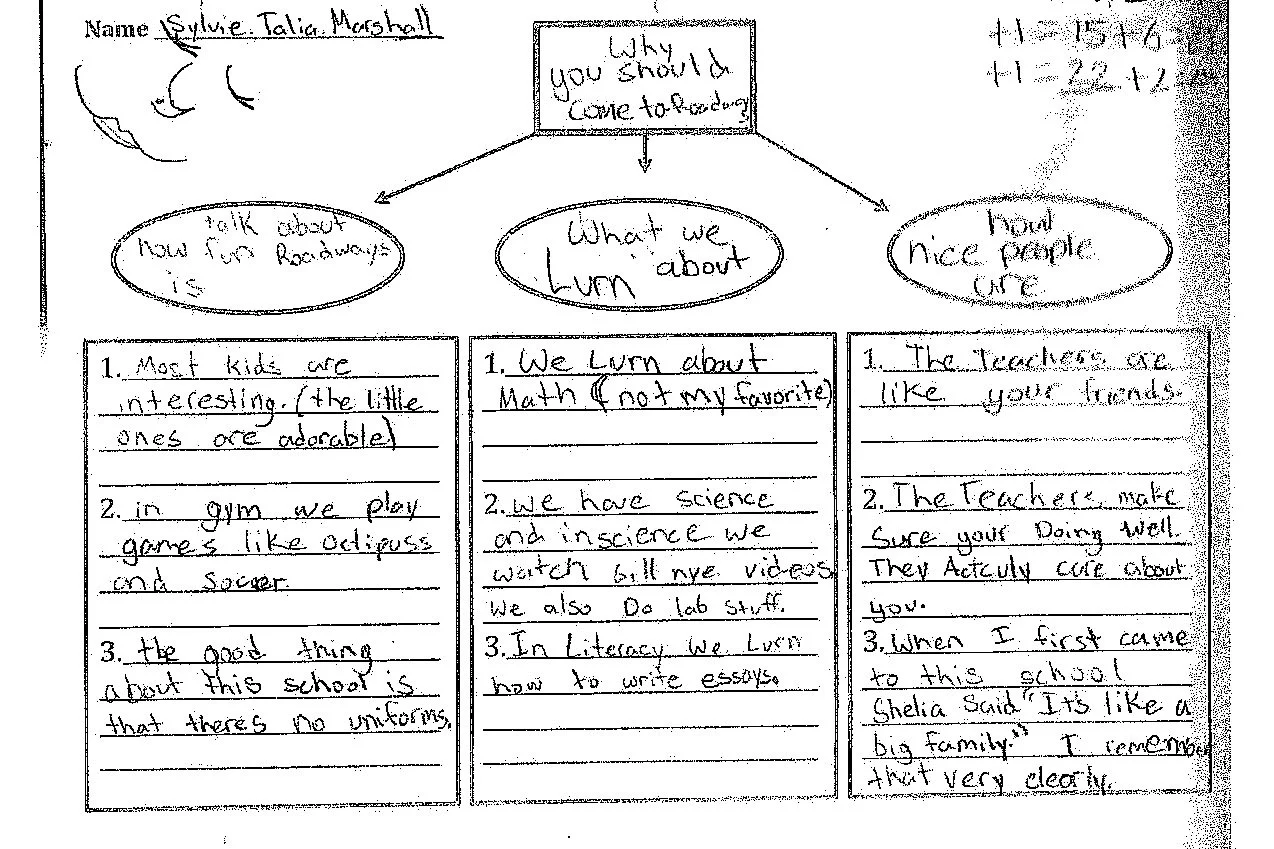 Name Sylvie Talia Marshall
Why
you should
come to Roadways
+1 = 15+6
+1 = 22 +2
talk about
how fun Roadways
is
What we
Lurn about
how
nice people
are
1. Most kids are
interesting. (the little
ones are adorable)
2. in gym we play
games like octipuss
and soccer
3. the good thing
about this school is
that there's no uniforms.
1. We Lurn about
Math (not my favorite)
2. we have science
and in science we
watch bill nye videos
we also Do lab stuff.
3. In Literacy We Lurn
how to write essays.
1. The Teachers are
like your friends.
2. The Teachers make
Sure your Doing Well.
They Actculy care about
you.
3. When I first came
to this school
Shelia Said "It's like a
big family." I remember
that very clearly.